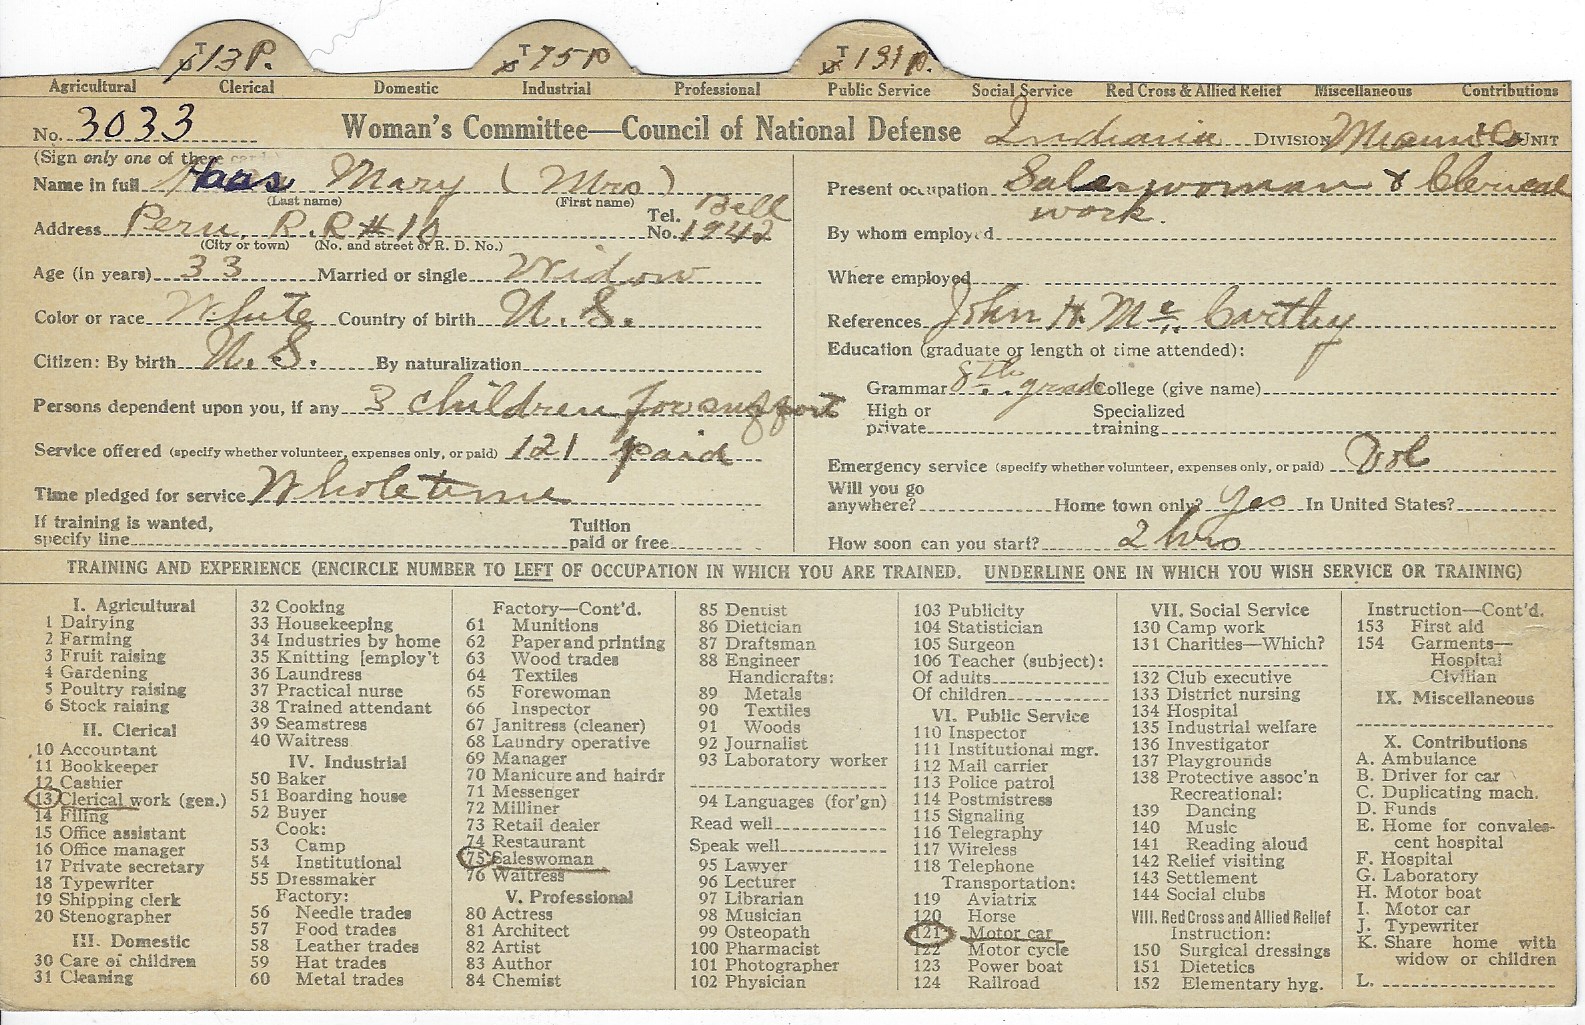 T 13 P. T 75 P T 131 P.
Agricultural Clerical Domestic Industrial Professional Public Service Social Service Red Cross & Allied Relief Miscellaneous Contributions
No. 3033 Woman's Committee—Council of National Defense Indiana DIVISION UNIT
(Sign only one of these
Name in full Haas Mary (Mrs)
(Last name) (First name)
Address Peru, R.R #10 Tel. No. Bell 1942
(City or town) (No. and street or R. D. No.)
Age (in years) 33 Married or single Widow
Color or race White Country of birth U. S.
Citizen: By birth U. S. By naturalization
Persons dependent upon you, if any 3 children for support
Service offered (specify whether volunteer, expenses only, or paid) 121 paid
Time pledged for service Whole time
If training is wanted, specify line Tuition paid or free
Present occupation Saleswoman & Clerical
work.
By whom employed
Where employed
References John H. Mc Carthy
Education (graduate or length of time attended):
Grammar 8th grade College (give name)
High or private Specialized training
Emergency service (specify whether volunteer, expenses only, or paid) Vol
Will you go anywhere? Home town only? Yes In United States?
How soon can you start? 2 hrs
TRAINING AND EXPERIENCE (ENCIRCLE NUMBER TO LEFT OF OCCUPATION IN WHICH YOU ARE TRAINED. UNDERLINE ONE IN WHICH YOU WISH SERVICE OR TRAINING)
I. Agricultural
1 Dairying
2 Farming
3 Fruit raising
4 Gardening
5 Poultry raising
6 Stock raising
II. Clerical
10 Accountant
11 Bookkeeper
12 Cashier
13 Clerical work (gen.)
14 Filing
15 Office assistant
16 Office manager
17 Private secretary
18 Typewriter
19 Shipping clerk
20 Stenographer
III. Domestic
30 Care of children
31 Cleaning
32 Cooking
33 Housekeeping
34 Industries by home
35 Knitting [employ't
36 Laundress
37 Practical nurse
38 Trained attendant
39 Seamstress
40 Waitress
IV. Industrial
50 Baker
51 Boarding house
52 Buyer
Cook:
53 Camp
54 Institutional
55 Dressmaker
Factory:
56 Needle trades
57 Food trades
58 Leather trades
59 Hat trades
60 Metal trades
Factory—Cont'd.
61 Munitions
62 Paper and printing
63 Wood trades
64 Textiles
65 Forewoman
66 Inspector
67 Janitress (cleaner)
68 Laundry operative
69 Manager
70 Manicure and hairdr
71 Messenger
72 Milliner
73 Retail dealer
74 Restaurant
75 Saleswoman
76 Waitress
V. Professional
80 Actress
81 Architect
82 Artist
83 Author
84 Chemist
85 Dentist
86 Dietician
87 Draftsman
88 Engineer
Handicrafts:
89 Metals
90 Textiles
91 Woods
92 Journalist
93 Laboratory worker
94 Languages (for'gn)
Read well
Speak well
95 Lawyer
96 Lecturer
97 Librarian
98 Musician
99 Osteopath
100 Pharmacist
101 Photographer
102 Physician
103 Publicity
104 Statistician
105 Surgeon
106 Teacher (subject):
Of adults
Of children
VI. Public Service
110 Inspector
111 Institutional mgr.
112 Mail carrier
113 Police patrol
114 Postmistress
115 Signaling
116 Telegraphy
117 Wireless
118 Telephone
Transportation:
119 Aviatrix
120 Horse
121 Motor car
122 Motor cycle
123 Power boat
124 Railroad
VII. Social Service
130 Camp work
131 Charities—Which?
132 Club executive
133 District nursing
134 Hospital
135 Industrial welfare
136 Investigator
137 Playgrounds
138 Protective assoc'n
Recreational:
139 Dancing
140 Music
141 Reading aloud
142 Relief visiting
143 Settlement
144 Social clubs
VIII. Red Cross and Allied Relief
Instruction:
150 Surgical dressings
151 Dietetics
152 Elementary hyg.
Instruction—Cont'd.
153 First aid
154 Garments—
Hospital
Civilian
IX. Miscellaneous
X. Contributions
A. Ambulance
B. Driver for car
C. Duplicating mach.
D. Funds
E. Home for convales-
cent hospital
F. Hospital
G. Laboratory
H. Motor boat
I. Motor car
J. Typewriter
K. Share home with
widow or children
L.